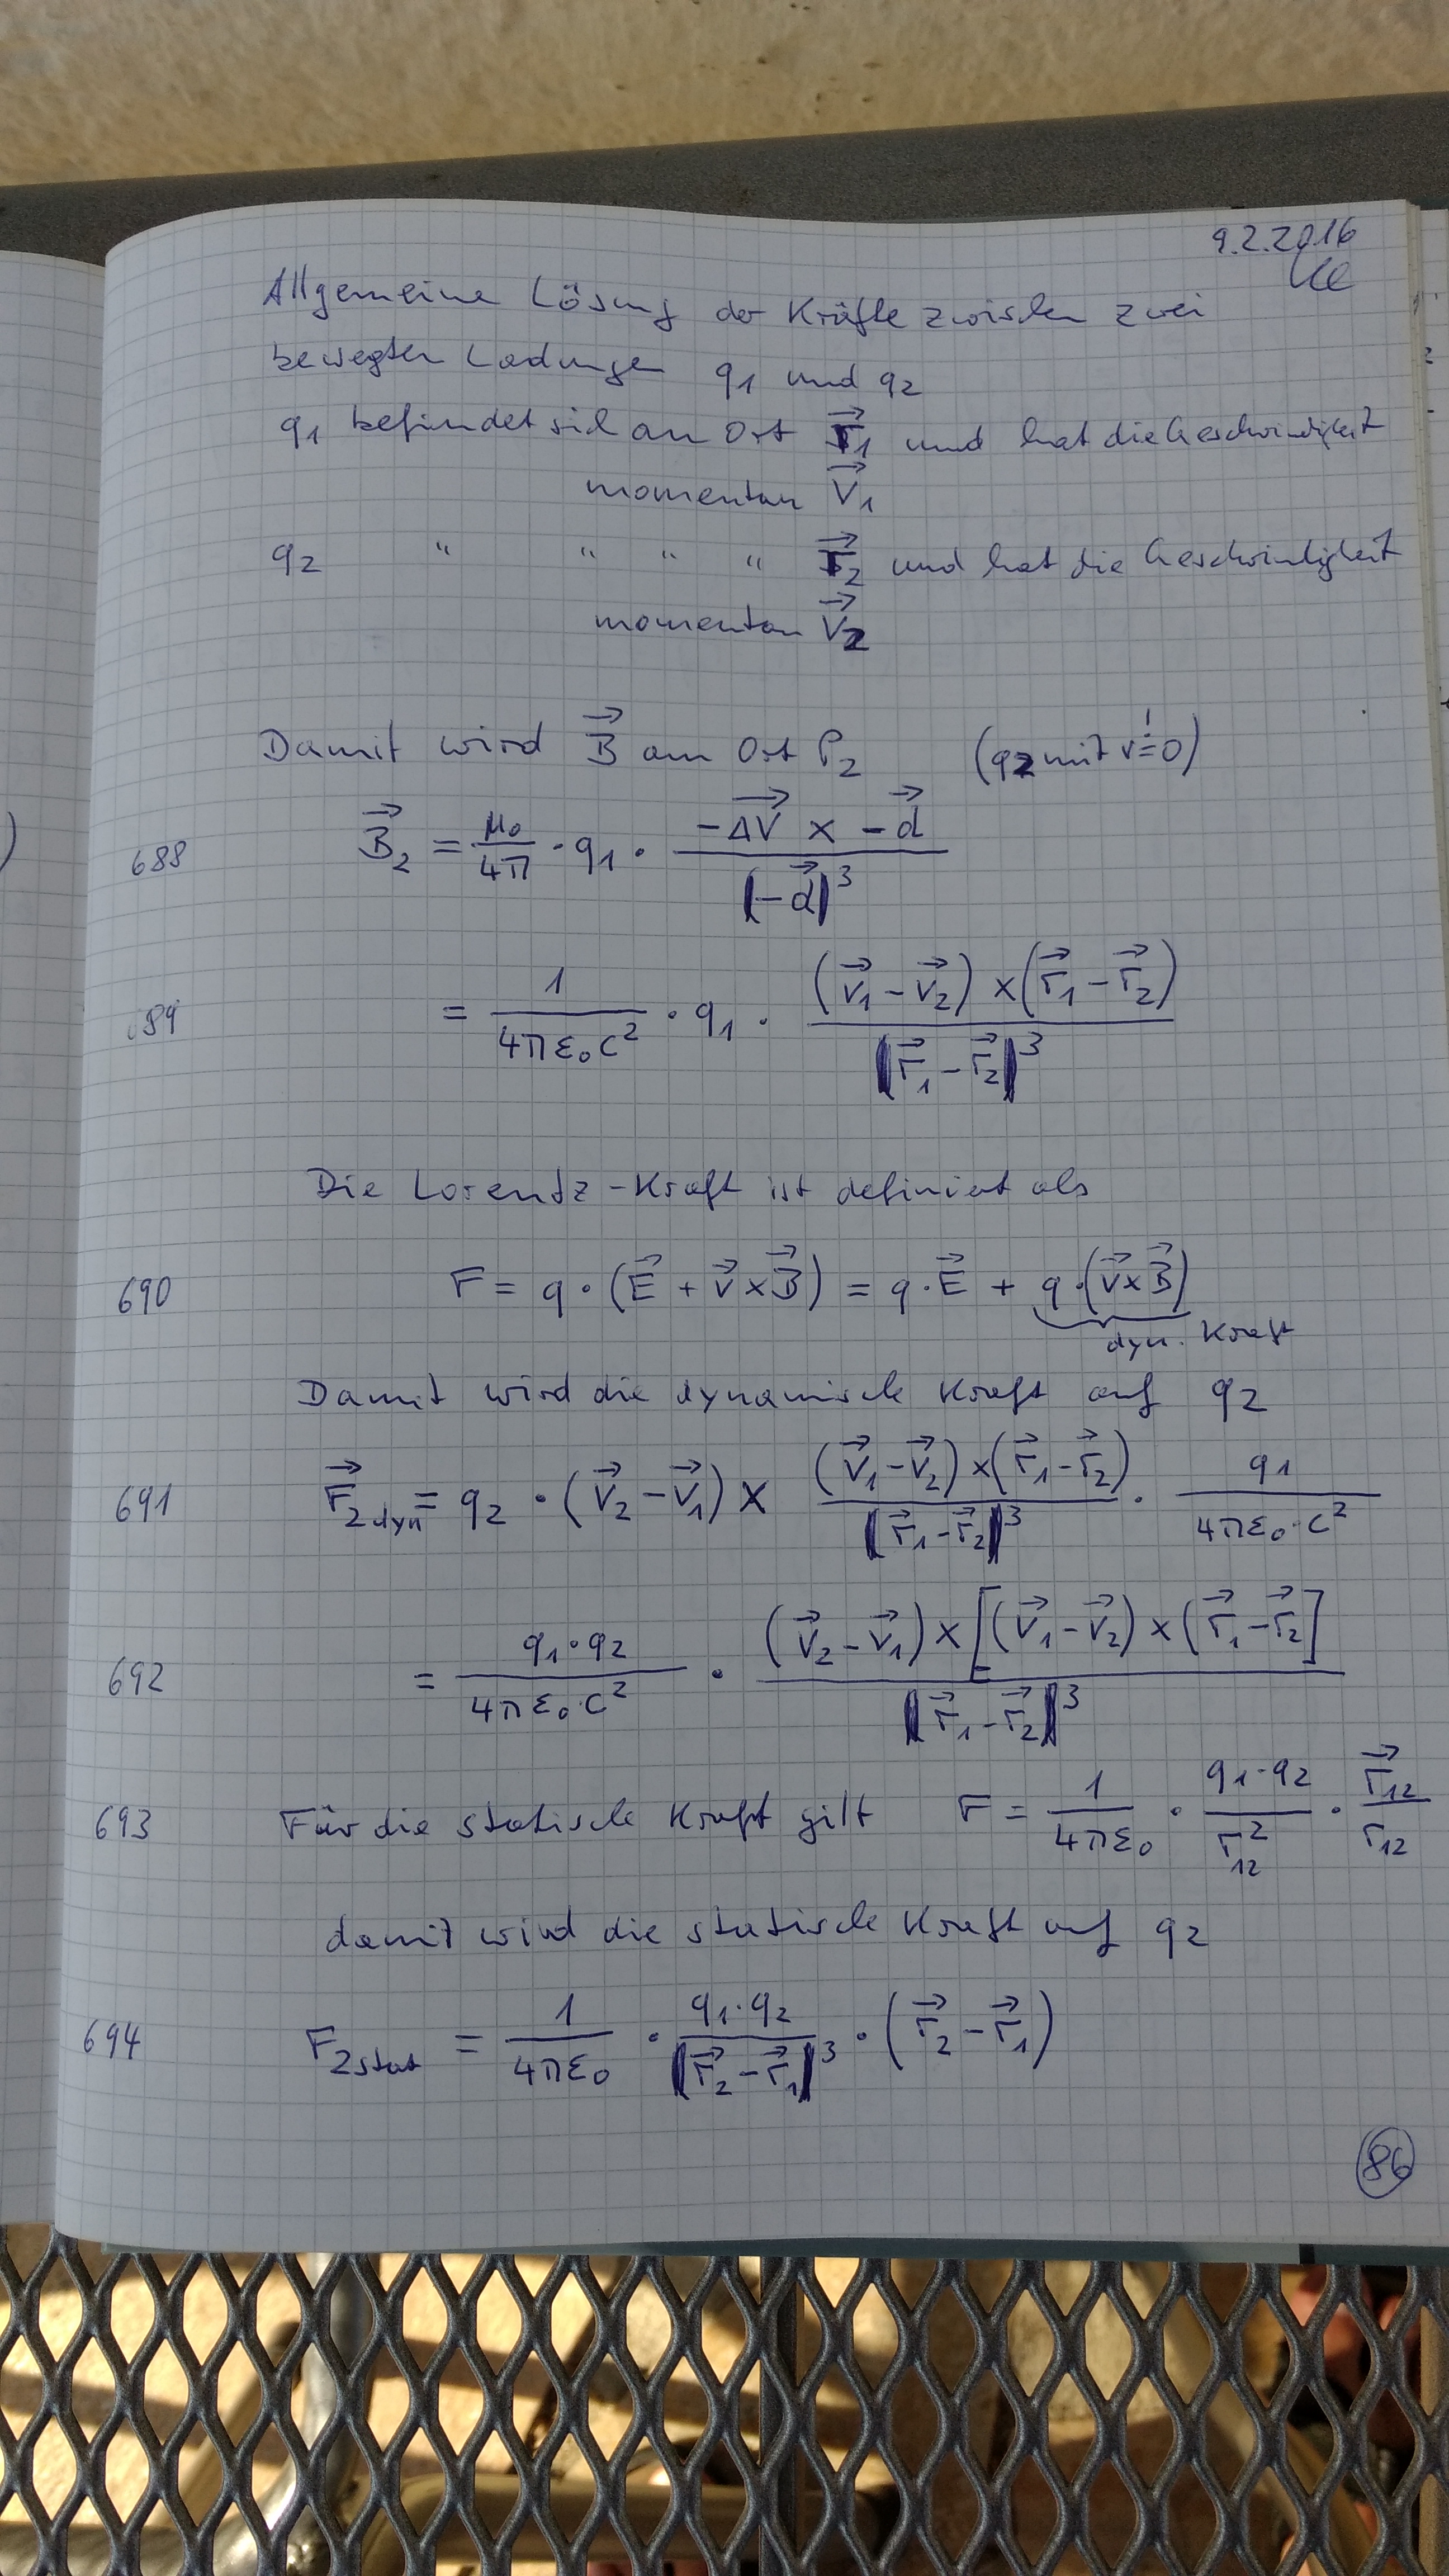 9.2.2016
Allgemeine Lösung der Kräfte zwischen zwei
bewegten Ladungen q₁ und q₂
q₁ befindet sich am Ort r⃗₁ und hat die Geschwindigkeit
momentan v⃗₁
q₂ " " " " r⃗₂ und hat die Geschwindigkeit
momentan v⃗₂
Damit wird B⃗ am Ort P₂ (q₂ mit v != 0)
688 B⃗₂ = μ₀/4π · q₁ · (-Δv⃗ × -d⃗)/|-d⃗|³
689 = 1/(4πε₀c²) · q₁ · ((v⃗₁ - v⃗₂) × (r⃗₁ - r⃗₂))/|r⃗₁ - r⃗₂|³
Die Lorentz-Kraft ist definiert als
690 F = q · (E⃗ + v⃗ × B⃗) = q · E⃗ + q · (v⃗ × B⃗)
dyn. Kraft
Damit wird die dynamische Kraft auf q₂
691 F⃗₂dyn = q₂ · (v⃗₂ - v⃗₁) × ((v⃗₁ - v⃗₂) × (r⃗₁ - r⃗₂))/|r⃗₁ - r⃗₂|³ · q₁/(4πε₀·c²)
692 = (q₁·q₂)/(4πε₀·c²) · ((v⃗₂ - v⃗₁) × [(v⃗₁ - v⃗₂) × (r⃗₁ - r⃗₂])/|r⃗₁ - r⃗₂|³
693 Für die statische Kraft gilt F = 1/(4πε₀) · (q₁·q₂)/r₁₂² · r⃗₁₂/r₁₂
damit wird die statische Kraft auf q₂
694 F₂stat = 1/(4πε₀) · (q₁·q₂)/|r⃗₂ - r⃗₁|³ · (r⃗₂ - r⃗₁)
86